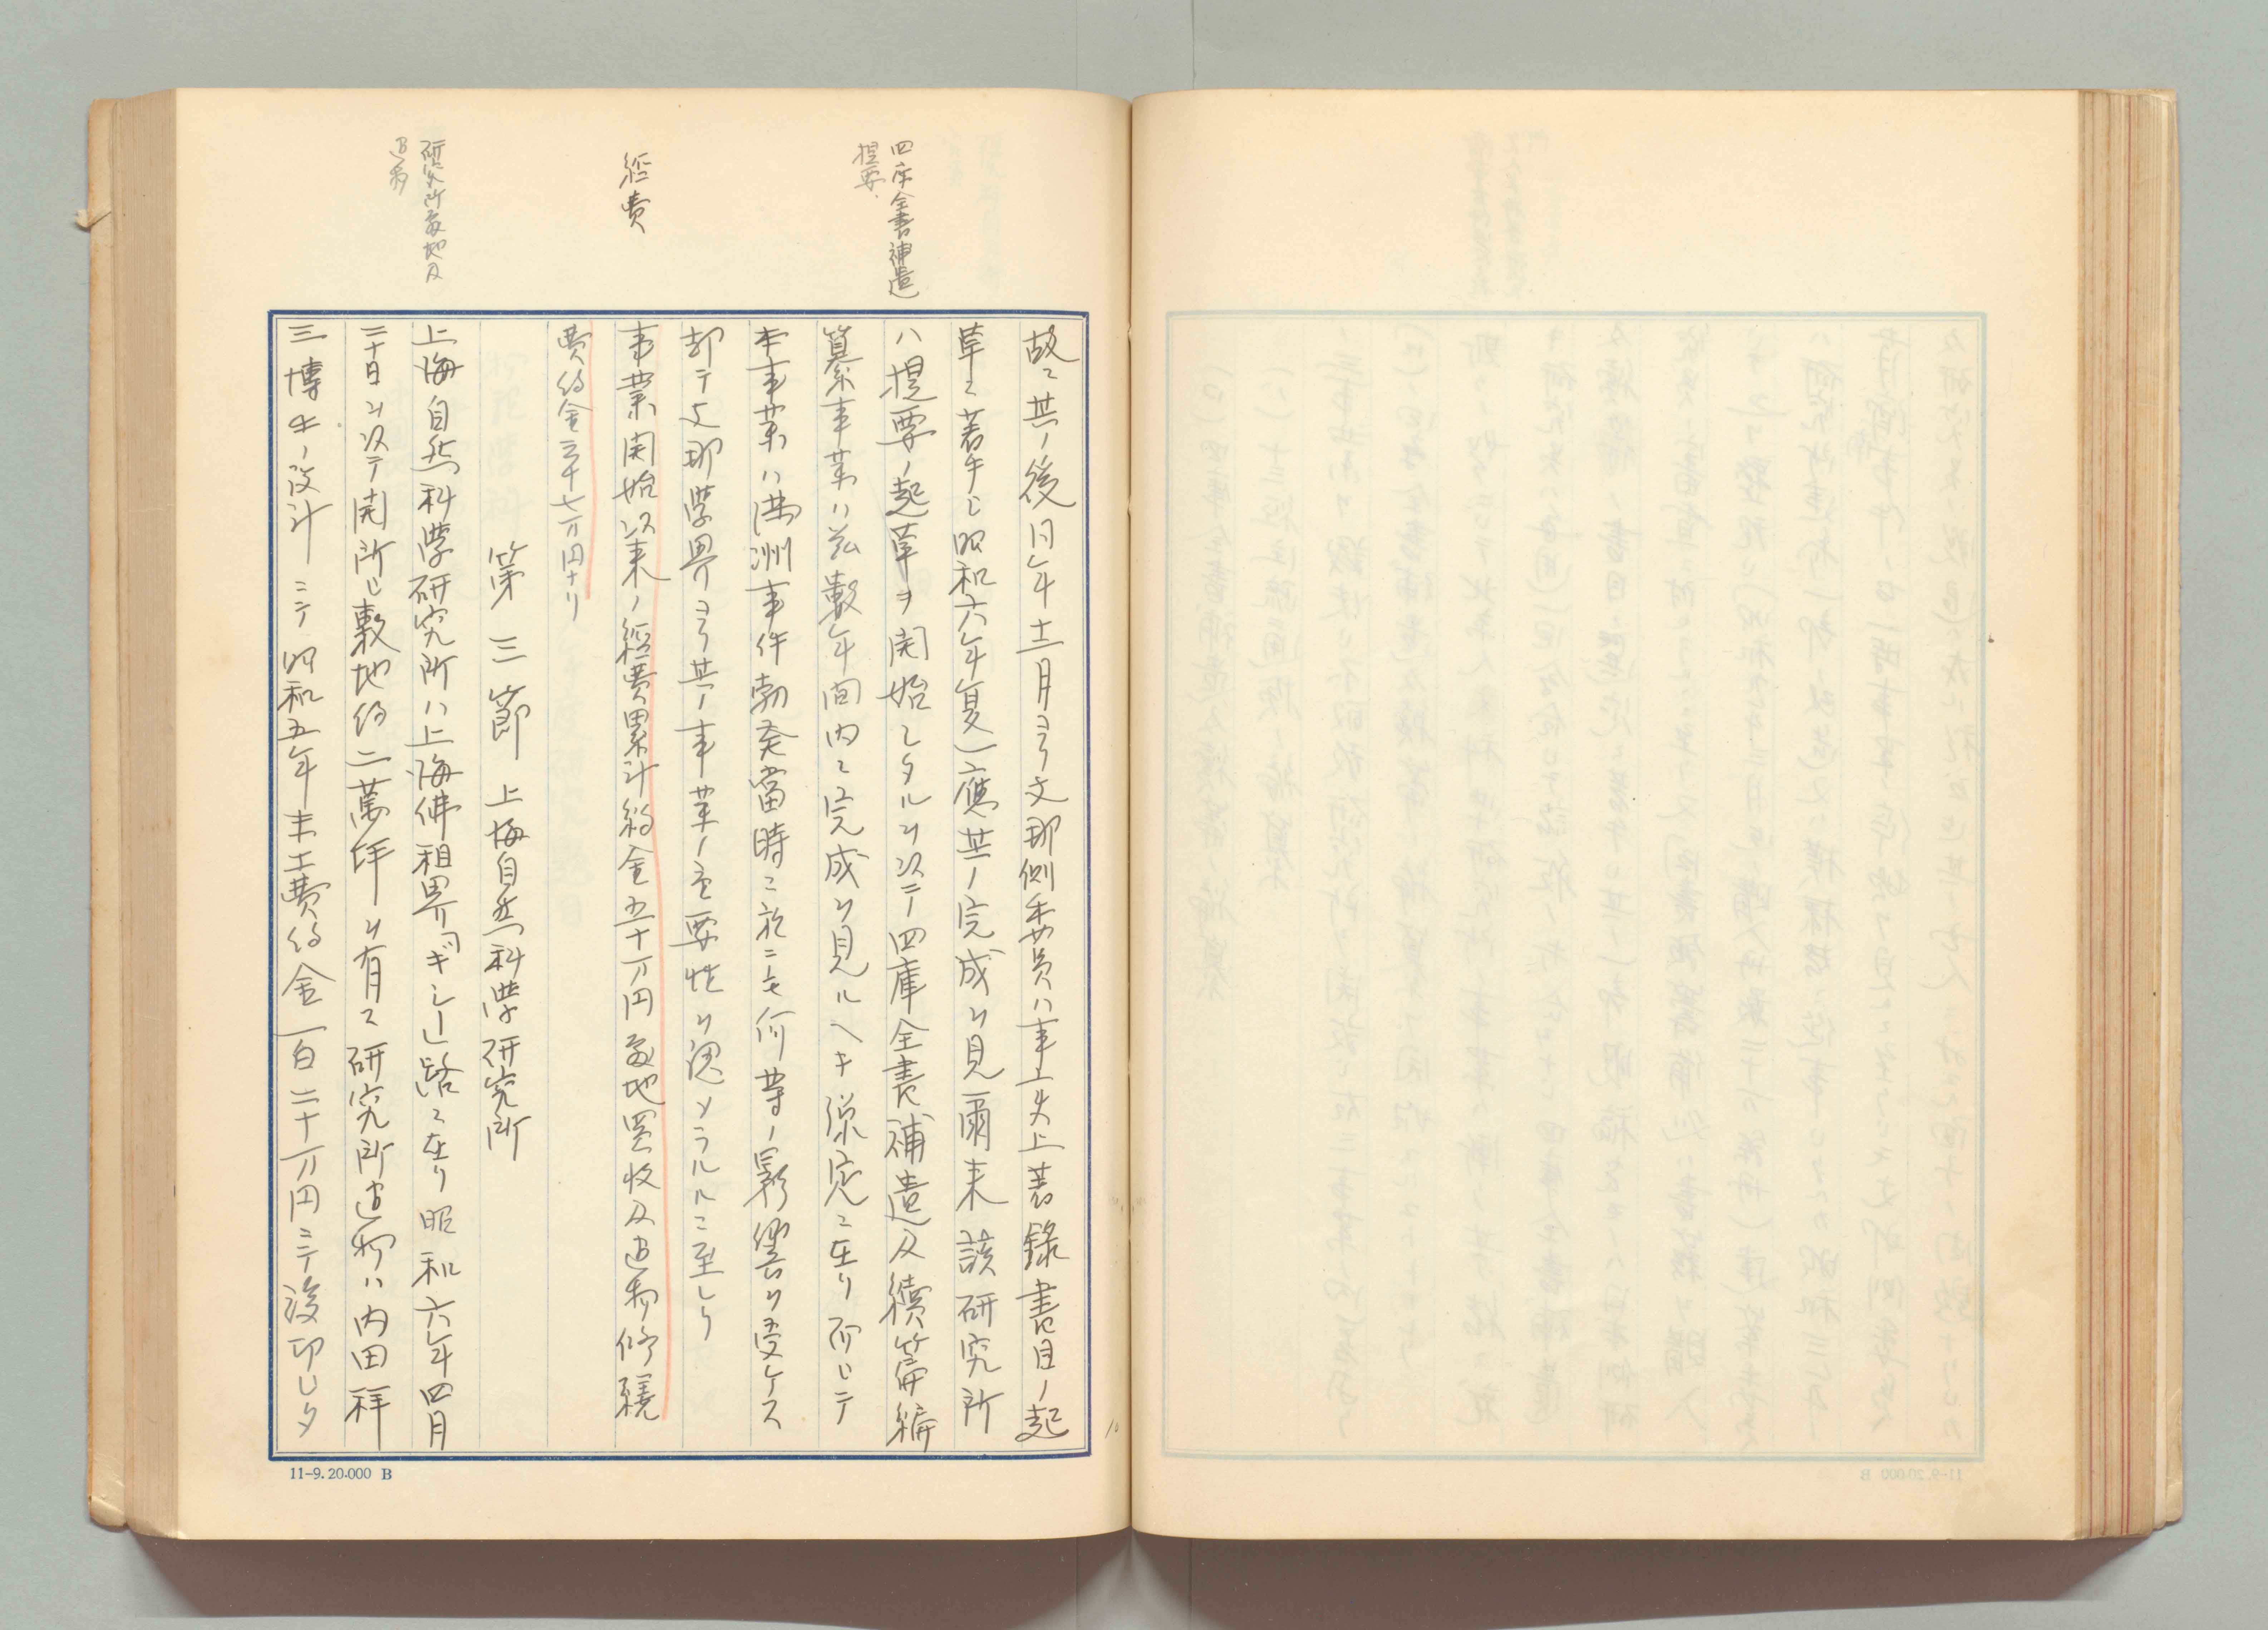 四庫全書補遺
提要
經費
研究所敷地及
建物
故ニ其ノ後同年十二月ヨリ支那側委員ハ事実上著錄書目ノ起
草ニ著手シ昭和六年夏一應其ノ完成ヲ見爾来該研究所
ハ提要ノ起草ヲ開始シタルヲ以テ四庫全書補遺及續篇編
纂事業ハ玆數年間内ニ完成ヲ見ルヘキ豫定ニ在リ而シテ
本事業ハ満洲事件勃発當時ニ於テモ何等ノ影響ヲ受ケス
却テ支那學界ヨリ其ノ事業ノ重要性ヲ認メラルルニ至レリ
事業開始以来ノ經費累計約金五十一万円敷地買收及建物修繕
費約金三十七万円ナリ
第三節 上海自然科學研究所
上海自然科學研究所ハ上海佛租界「ギシー」路ニ在リ昭和六年四月
二十日ヲ以テ開所シ敷地約二萬坪ヲ有ス研究所建物ハ内田祥
三博士ノ設計ニテ昭和五年末工費約金一百二十万円ニテ竣功シタ
11-9. 20.000 B